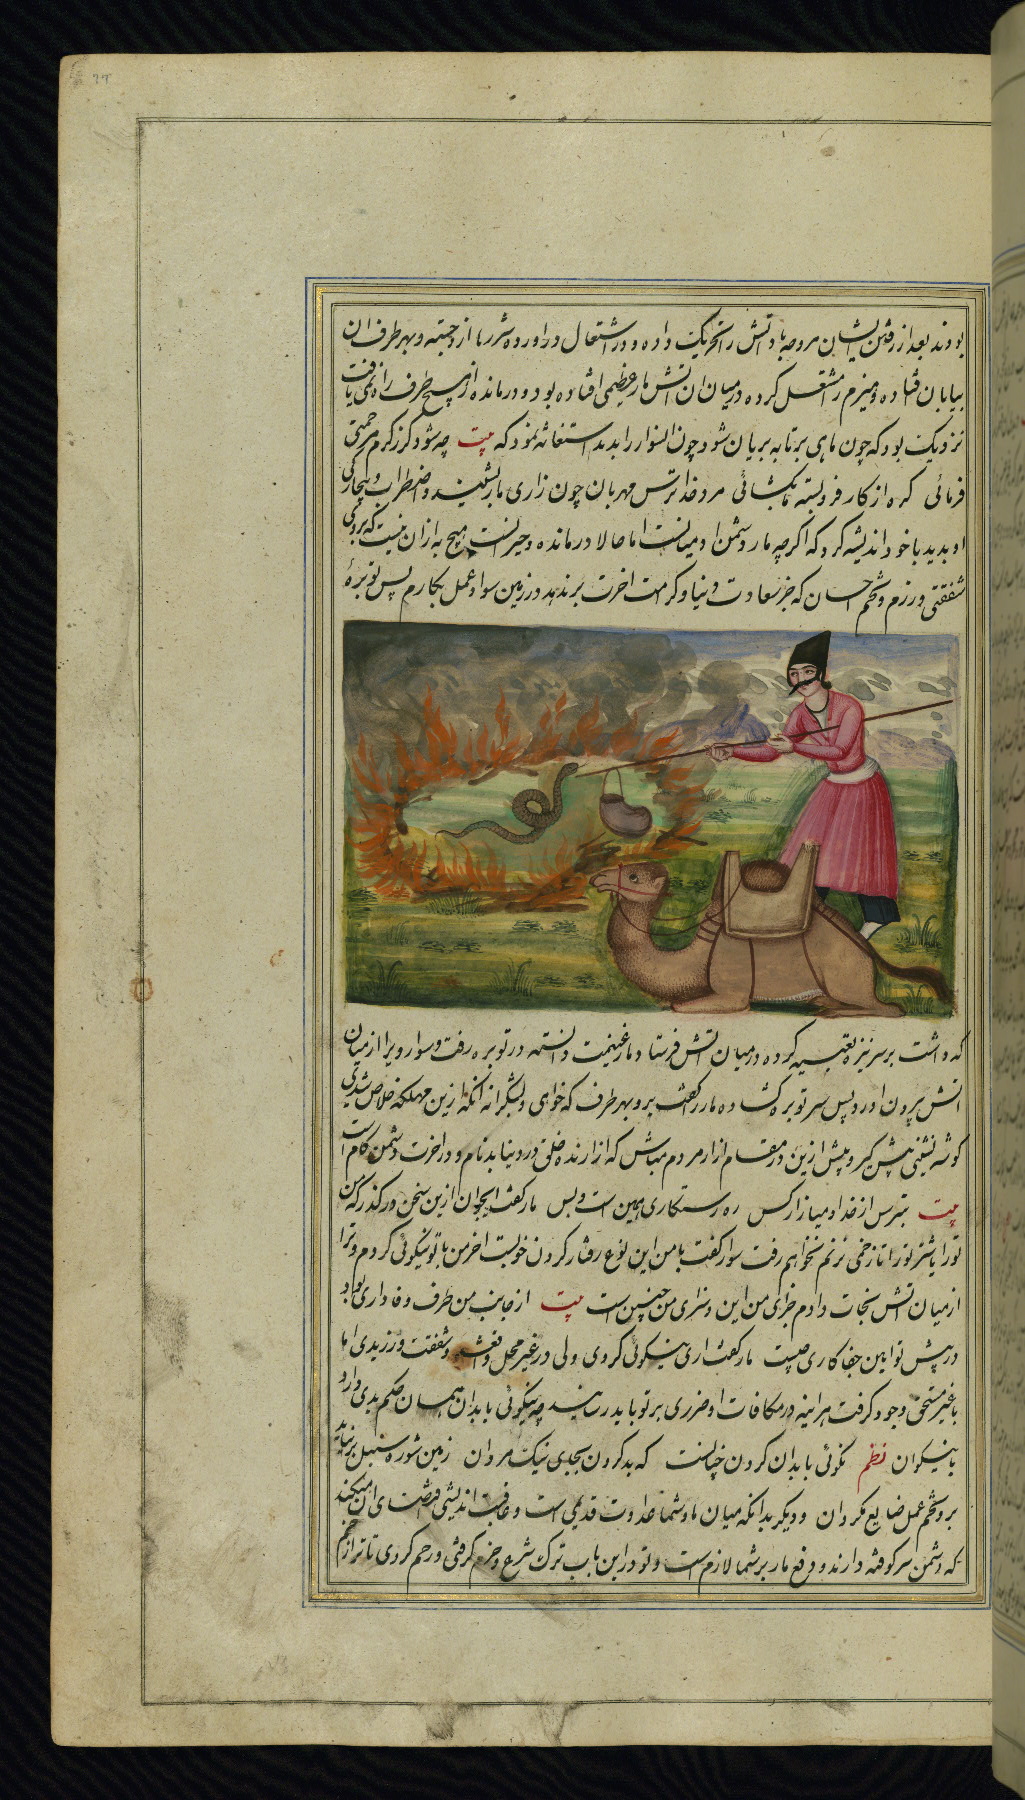 بودند بعد از رفتن ایشان مروحه باد آتش را تحریک داده و در اشتعال در آورده شررها از و جسته و بهر طرف ان
بیابان فتاده و هیزم را مشتعل کرده در میان ان اتش مار عظیمی افتاده بود و درمانده از هیچ طرف راه نمی یافت
نزدیک بود که چون ماهی بر تابه بریان شود چون ان سوار را بدید استغاثه نمود که بیت چه شود گر ز کرم مرحمتی
فرمائی گره از کار فرو بسته ما بگشائی مرد خدا ترس مهربان چون زاری مار بشنید و اضطراب و بیچارگی
او بدید با خود اندیشه کرد که اگرچه مار دشمن ادمیانست اما حالا درمانده و حیرانست هیچ به ازان نیست که بروی
شفقتی ورزم و تخم احسان که جز سعادت دنیا و کرامت اخرت بر ندهد در زمین سواد عمل بکارم پس توبرهٔ
که داشت بر سر نیزه تعبیه کرده در میان اتش فرستاد مار غنیمت دانسته در توبره رفت و سوار ویرا از میان
اتش برون اورد پس سر توبره کشاده مار را گفت برو بهر طرف که خواهی و بشکرانه انکه ازین مهلکه خلاص شدی
گوشه نشینی پیش گیر و پیش ازین در مقام ازار مردم مباش که ازارنده خلق در دنیا بدنام و در اخرت دشمن کام است
بیت بترس از خدا و میازار کس ره رستکاری همین است و بس مار گفت ایجوان ازین سخن در گذر که من
تورا یا شتر تورا تا زخمی نزنم نخواهم رفت سوار گفت با من این نوع رفتار کردن خوبست اخر من با تو نیکوئی کردم و ترا
از میان اتش نجات دادم جزای من این و سزای من چنین است بیت از جانب من طرف وفاداری بود
در پیش تو این جفا کاری چیست مار گفت اری نیکوئی کردی ولی در غیر محل واقع شد و شفقت ورزیدی اما
با غیر مستحق وجود گرفت هر اینه در مکافات او ضرری بر تو باید رسانید چه نیکوئی با بدان همان حکم بدی دارد
با نیکوان نظم نکوئی با بدان کردن چنانست که بد کردن بجای نیک مردان زمین شوره سنبل بر نیارد
برو تخم عمل ضایع مگردان و دیگر بدانکه میان ما و شما عداوت قدیمی است و عاقبت اندیشی اقتضای ان میکند
که دشمن سر کوفته دارند و دفع مار بر شما لازم است و تو در این باب ترک شرع و حزم گرفتی و رحم کردی تا ترا زخم